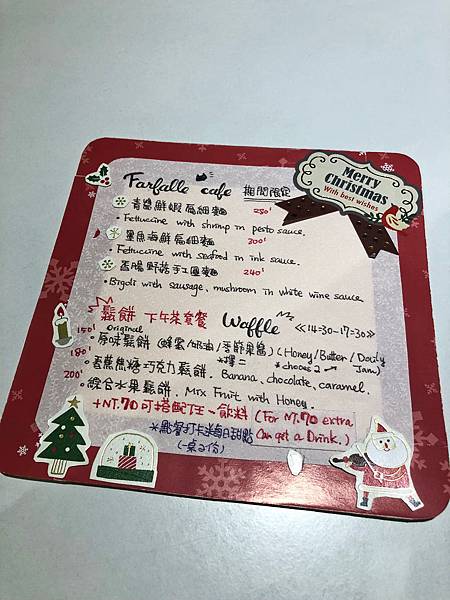 Merry
Christmas
With best wishes
Farfalle cafe 期間限定
青醬鮮蝦扁細麵 280'
• Fettuccine with shrimp in pesto sauce.
墨魚海鮮扁細麵 300'
• Fettuccine with seafood in ink sauce.
香腸野菇手工圓麵 240'
• Bigoli with sausage, mushroom in white wine sauce
鬆餅 下午茶套餐 Waffle ≪14=30-17=30≫
Original
150' • 原味鬆餅 (蜂蜜/奶油/季節果醬) (Honey/Butter/Daily Jam)
*擇二 *chooes 2
180' • 香蕉焦糖巧克力鬆餅. Banana, chocolate, caramel.
200' • 綜合水果鬆餅. Mix Fruit with Honey.
+NT.70可搭配任一飲料 (For NT.70 extra
Can get a Drink.)
*點餐打卡送每日甜點
(一桌2份)